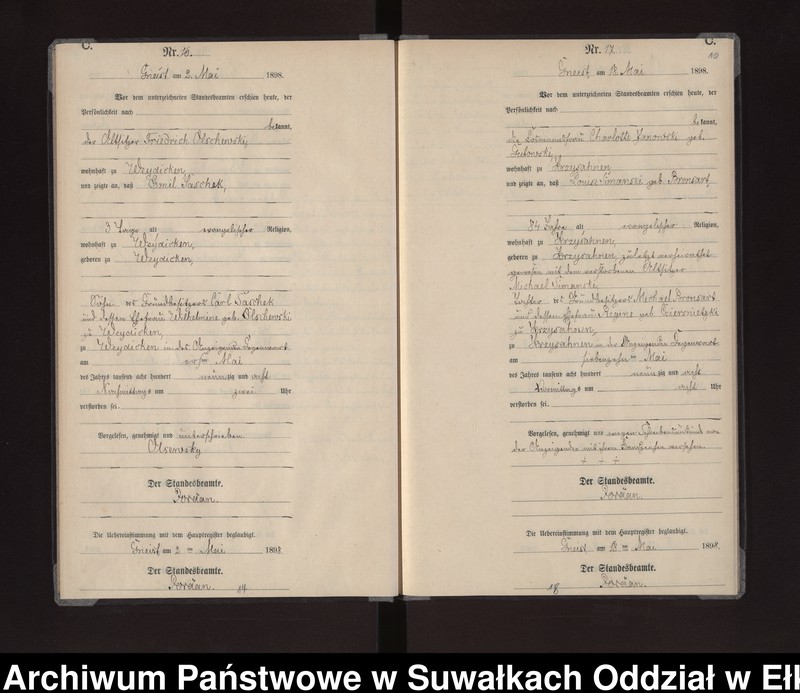 C.
Nr. 16.
Gneist am 2. Mai 1898.
Vor dem unterzeichneten Standesbeamten erschien heute, der
Persönlichkeit nach
bekannt,
der Altsitzer Friedrich Olschewski,
wohnhaft zu Weydicken,
und zeigte an, daß Emil Saschek,
3 Tage alt evangelischer Religion,
wohnhaft zu Weydicken,
geboren zu Weydicken,
Sohn des Grundbesitzers Carl Saschek
und dessen Ehefrau Wilhelmine geb. Olschewski
zu Weydicken,
zu Weydicken in des Anzeigenden Gegenwart
am ersten Mai
des Jahres tausend acht hundert neunzig und acht
Nachmittags um zwei Uhr
verstorben sei.
Vorgelesen, genehmigt und unterschrieben
Olsewsky
Der Standesbeamte.
Pordan.
Die Uebereinstimmung mit dem Hauptregister beglaubigt.
Gneist am 2 ten Mai 1898.
Der Standesbeamte.
Pordan.
C.
Nr. 17.
Gneist am 18 Mai 1898.
Vor dem unterzeichneten Standesbeamten erschien heute, der
Persönlichkeit nach
bekannt,
die Losmannsfrau Charlotte Janowski geb.
wohnhaft zu Krzysahnen,
und zeigte an, daß Louise Simanski geb. Bronsart,
84 Jahre alt evangelischer Religion,
wohnhaft zu Krzysahnen,
geboren zu Krzysahnen, zuletzt verheirathet
gewesen mit dem verstorbenen Altsitzer
Michael Simanski
Tochter des Grundbesitzers Michael Bronsart
und dessen Ehefrau Regine geb.
zu Krzysahnen,
zu Krzysahnen in der Anzeigenden Gegenwart
am siebenzehn ten Mai
des Jahres tausend acht hundert neunzig und acht
Vormittags um acht Uhr
verstorben sei.
Vorgelesen, genehmigt und wegen Schreibensunkunde von
der Anzeigenden mit ihrem Handzeichen versehen.
+ + +
Der Standesbeamte.
Pordan.
Die Uebereinstimmung mit dem Hauptregister beglaubigt.
Gneist am 18 ten Mai 1898.
Der Standesbeamte.
Pordan.
Archiwum Państwowe w Suwałkach Oddział w Ełk